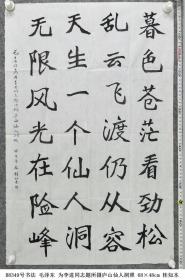 暮色苍茫看劲松
乱云飞渡仍从容
天生一个仙人洞
无限风光在险峰
B6349号书法 毛泽东 为李进同志题所摄庐山仙人洞照 68×48cm 桂知本